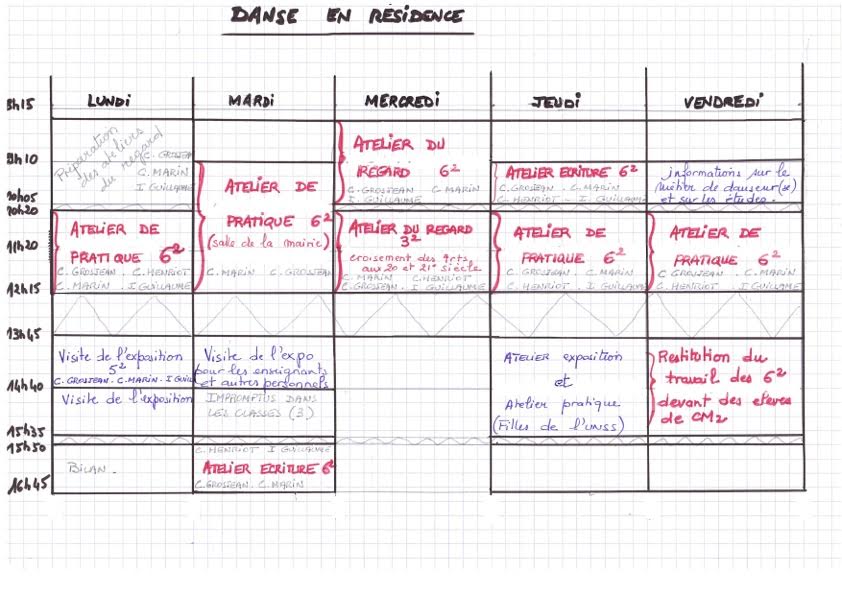 DANSE EN RESIDENCE
LUNDI MARDI MERCREDI JEUDI VENDREDI
8h15
9h10
10h05
10h20
11h20
12h15
13h45
14h40
15h35
15h50
16h45
Préparation
des ateliers
du regard
C. GROSJEAN
C. MARIN
I GUILLAUME
ATELIER DE
PRATIQUE 6²
C. GROSJEAN . C. HENRIOT
C. MARIN . I GUILLAUME
Visite de l'exposition
5²
C. GROSJEAN . C. MARIN . I GUILL
Visite de l'exposition
BILAN .
ATELIER DE
PRATIQUE 6²
(salle de la mairie)
C. MARIN C. GROSJEAN
Visite de l'expo
pour les enseignants
et autres personnels
IMPROMPTUS DANS
LES CLASSES (3)
C. HENRIOT I GUILLAUME
ATELIER ECRITURE 6²
C. GROSJEAN . C. MARIN
ATELIER DU
REGARD 6²
C. GROSJEAN C. MARIN
I GUILLAUME
ATELIER DU REGARD
3²
croisement des Arts
aux 20 et 21e siècle
C. MARIN C. HENRIOT
C. GROSJEAN . I GUILLAUME
ATELIER ECRITURE 6²
C. GROSJEAN . C. MARIN
C. HENRIOT - I GUILLAUME
ATELIER DE
PRATIQUE 6²
C. GROSJEAN . C. MARIN
C. HENRIOT . I GUILLAUME
ATELIER exposition
et
Atelier pratique
(Filles de l'UNSS)
informations sur le
métier de danseur(se)
et sur les études.
ATELIER DE
PRATIQUE 6²
C. GROSJEAN . C. MARIN
C. HENRIOT I GUILLAUME
Restitution du
travail des 6²
devant des eleves
de CM2